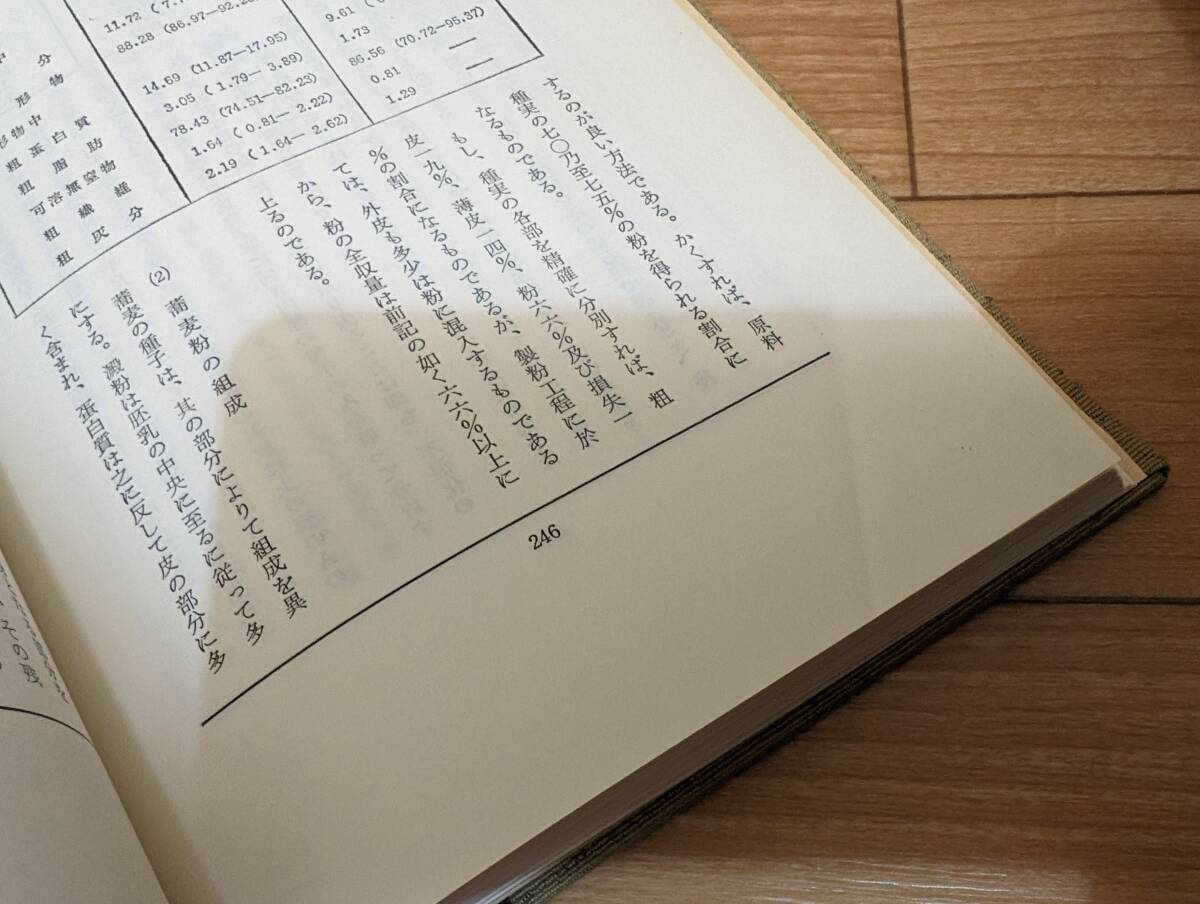 分 11.72
形物 88.28
形物中
粗蛋白質 14.69 (11.87—17.95) 9.61
粗脂肪 3.05 ( 1.79— 3.89) 1.73
可溶無窒物 78.43 (74.51—82.23) 86.56 (70.72—95.37)
粗繊維 1.64 ( 0.81— 2.22) 0.81 —
粗灰分 2.19 ( 1.64— 2.62) 1.29 —
するのが良い方法である。かくすれば、原料
種実の七〇乃至七五%の粉を得られる割合に
なるものである。
もし、種実の各部を精確に分別すれば、粗
皮一九%、薄皮一四%、粉六六%及び損失一
%の割合になるものであるが、製粉工程に於
ては、外皮も多少は粉に混入するものである
から、粉の全収量は前記の如く六六%以上に
上るのである。
(2) 蕎麦粉の組成
蕎麦の種子は、其の部分によりて組成を異
にする。澱粉は胚乳の中央に至るに従って多
く含まれ、蛋白質は之に反して皮の部分に多
246